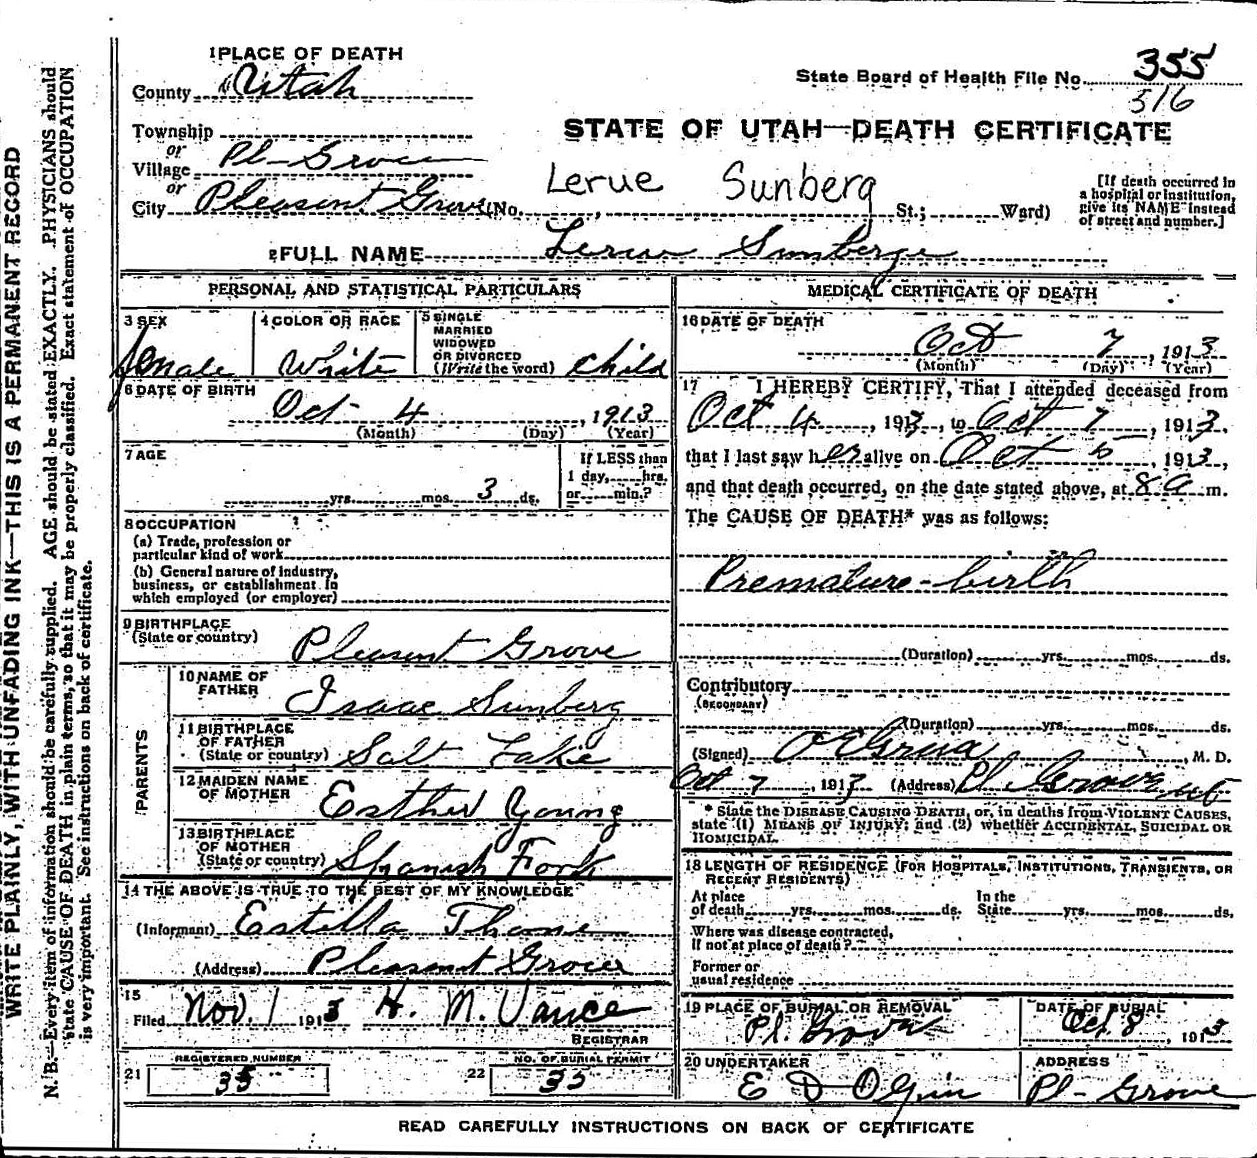 1 PLACE OF DEATH
County Utah
Township
or
Village Pl-Grove
or
City Pleasant Grove (No. , St.; Ward)
State Board of Health File No. 355
516
STATE OF UTAH—DEATH CERTIFICATE
Lerue Sunberg
[If death occurred in
a hospital or institution,
give its NAME instead
of street and number.]
2 FULL NAME Lerue Sunberge
PERSONAL AND STATISTICAL PARTICULARS
3 SEX
female
4 COLOR OR RACE
White
5 SINGLE
MARRIED
WIDOWED
OR DIVORCED
(Write the word) child
6 DATE OF BIRTH
Oct 4, 1913
(Month) (Day) (Year)
7 AGE
yrs. mos. 3 ds.
If LESS than
1 day, hrs.
or min.?
8 OCCUPATION
(a) Trade, profession or
particular kind of work
(b) General nature of industry,
business, or establishment in
which employed (or employer)
9 BIRTHPLACE
(State or country) Pleasant Grove
PARENTS
10 NAME OF
FATHER Isaac Sunberg
11 BIRTHPLACE
OF FATHER
(State or country) Salt Lake
12 MAIDEN NAME
OF MOTHER Esther Young
13 BIRTHPLACE
OF MOTHER
(State or country) Spanish Fork
14 THE ABOVE IS TRUE TO THE BEST OF MY KNOWLEDGE
(Informant) Estilla Thorne
(Address) Pleasant Grove
15
Filed Nov. 1 1913 H. M. Vance
REGISTRAR
REGISTERED NUMBER
21 35
NO. OF BURIAL PERMIT
22 35
MEDICAL CERTIFICATE OF DEATH
16 DATE OF DEATH
Oct 7, 1913
(Month) (Day) (Year)
17 I HEREBY CERTIFY, That I attended deceased from
Oct 4, 1913, to Oct 7, 1913.
that I last saw her alive on Oct 5, 1913,
and that death occurred, on the date stated above, at 8 a m.
The CAUSE OF DEATH* was as follows:
Premature-birth
(Duration) yrs. mos. ds.
Contributory
(SECONDARY)
(Duration) yrs. mos. ds.
(Signed) O E Grua, M. D.
Oct 7, 1913 (Address) Pl Grove
* State the DISEASE CAUSING DEATH, or, in deaths from VIOLENT CAUSES,
state (1) MEANS OF INJURY; and (2) whether ACCIDENTAL, SUICIDAL OR
HOMICIDAL.
18 LENGTH OF RESIDENCE (FOR HOSPITALS, INSTITUTIONS, TRANSIENTS, OR
RECENT RESIDENTS)
At place
of death yrs. mos. ds.
In the
State yrs. mos. ds.
Where was disease contracted,
if not at place of death?
Former or
usual residence
19 PLACE OF BURIAL OR REMOVAL
Pl. Grove
DATE OF BURIAL
Oct 8, 1913
20 UNDERTAKER
E D
ADDRESS
Pl-Grove
READ CAREFULLY INSTRUCTIONS ON BACK OF CERTIFICATE
WRITE PLAINLY, WITH UNFADING INK—THIS IS A PERMANENT RECORD
N. B.—Every item of information should be carefully supplied. AGE should be stated EXACTLY. PHYSICIANS should
state CAUSE OF DEATH in plain terms, so that it may be properly classified. Exact statement of OCCUPATION
is very important. See instructions on back of certificate.